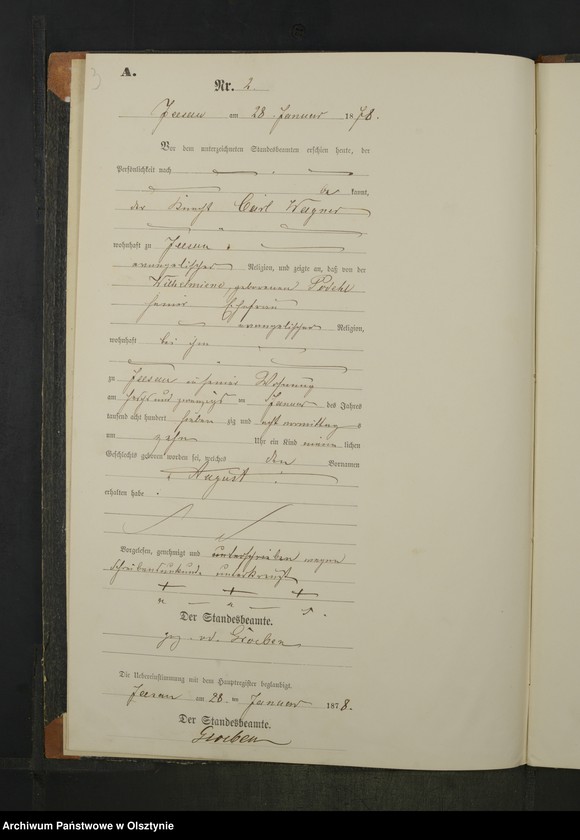 3
A.
Nr. 2.
Jeesau am 28 Januar 1878.
Vor dem unterzeichneten Standesbeamten erschien heute, der
Persönlichkeit nach
be kannt,
der Knecht Carl Wagner
wohnhaft zu Jeesau
evangelischer Religion, und zeigte an, daß von der
Wilhelmiene geborenen Poschl
seiner Ehefrau
evangelischer Religion,
wohnhaft bei ihm
zu Jeesau in seiner Wohnung
am sechs und zwanzigsten Januar des Jahres
tausend acht hundert sieben zig und acht vormittag s
um zehn Uhr ein Kind männ lichen
Geschlechts geboren worden sei, welches den Vornamen
August
erhalten habe.
Vorgelesen, genehmigt und unterschrieben wegen
Schreibensunkunde unterkreuzt
+ + +
Der Standesbeamte.
gez. v d. Groeben
Die Uebereinstimmung mit dem Hauptregister beglaubigt
Jeesau am 28 ten Januar 1878.
Der Standesbeamte.
Groeben
Archiwum Państwowe w Olsztynie